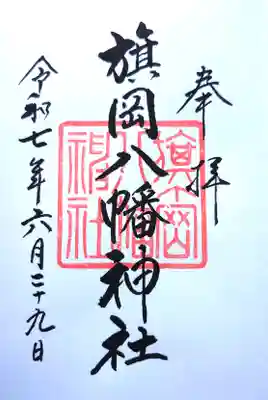 奉拝
旗岡八幡神社
令和七年六月二十九日